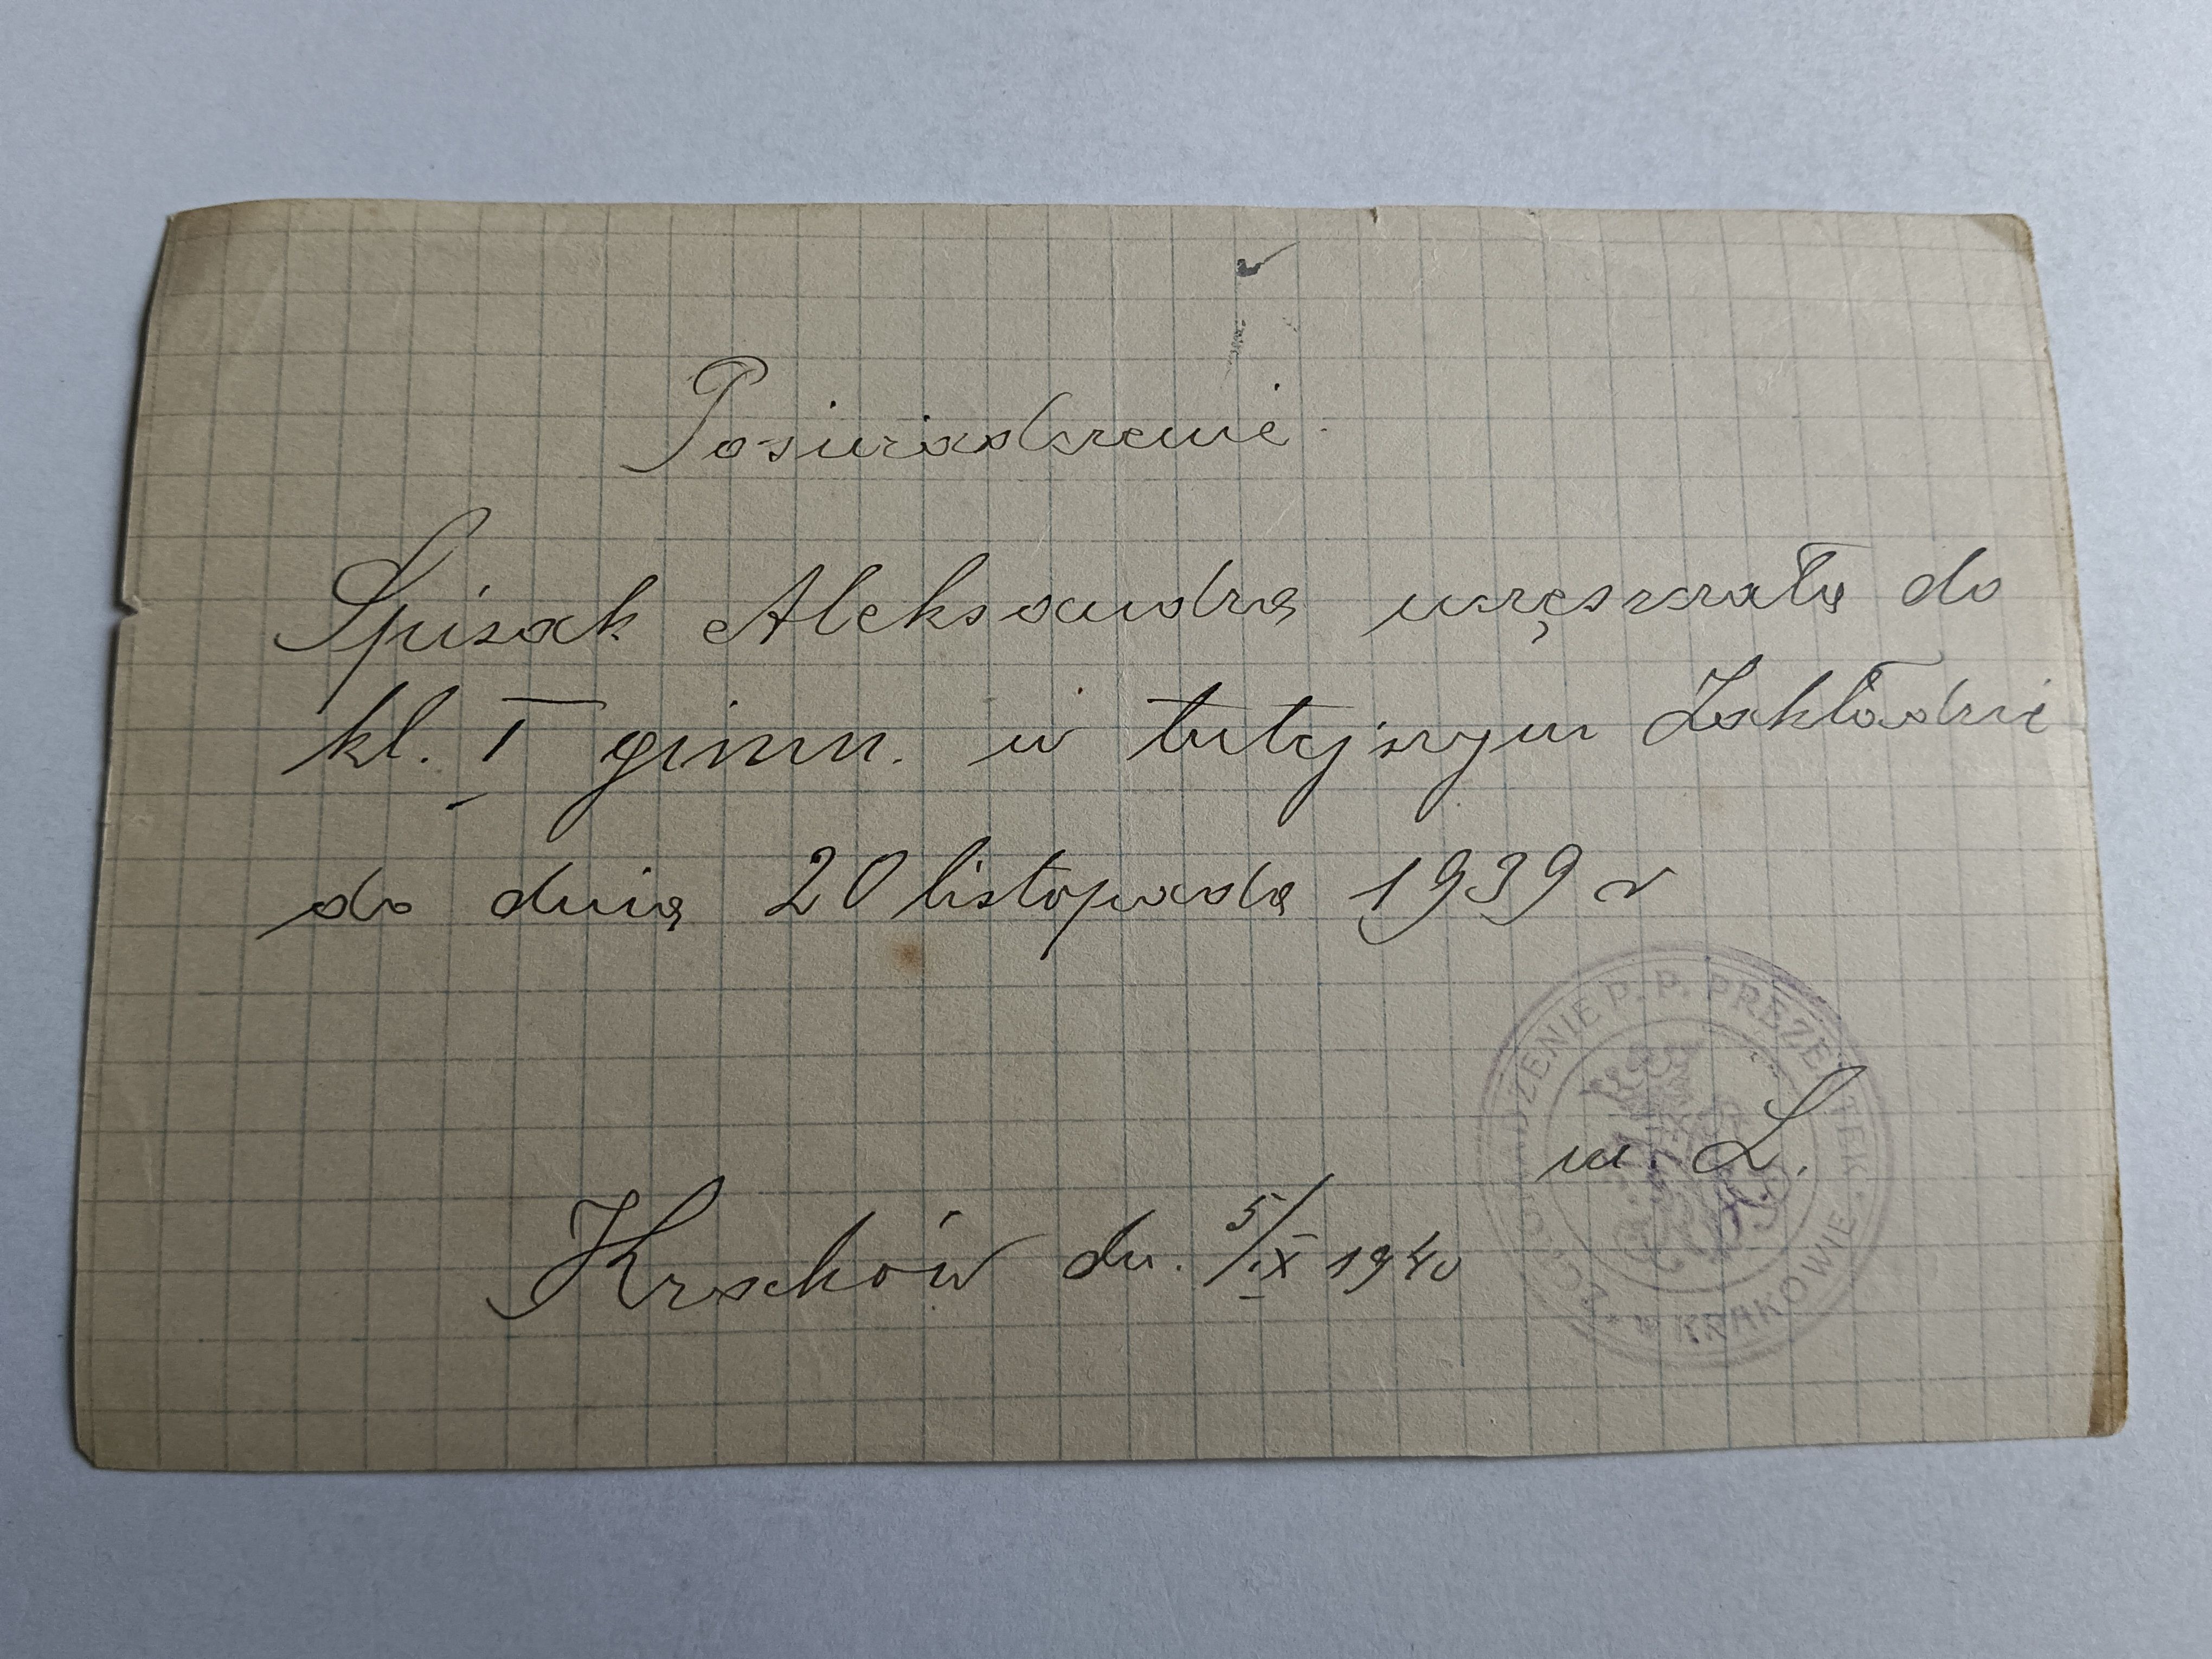 Poświadczenie.
Spisak Aleksandra uczęszczała do
kl. I gimn. w tutejszym Zakładzie
do dnia 20 listopada 1939 r
m. L.
Kraków dn. 5/IX 1940
ZGROMADZENIE P. P. PREZENTEK
W KRAKOWIE